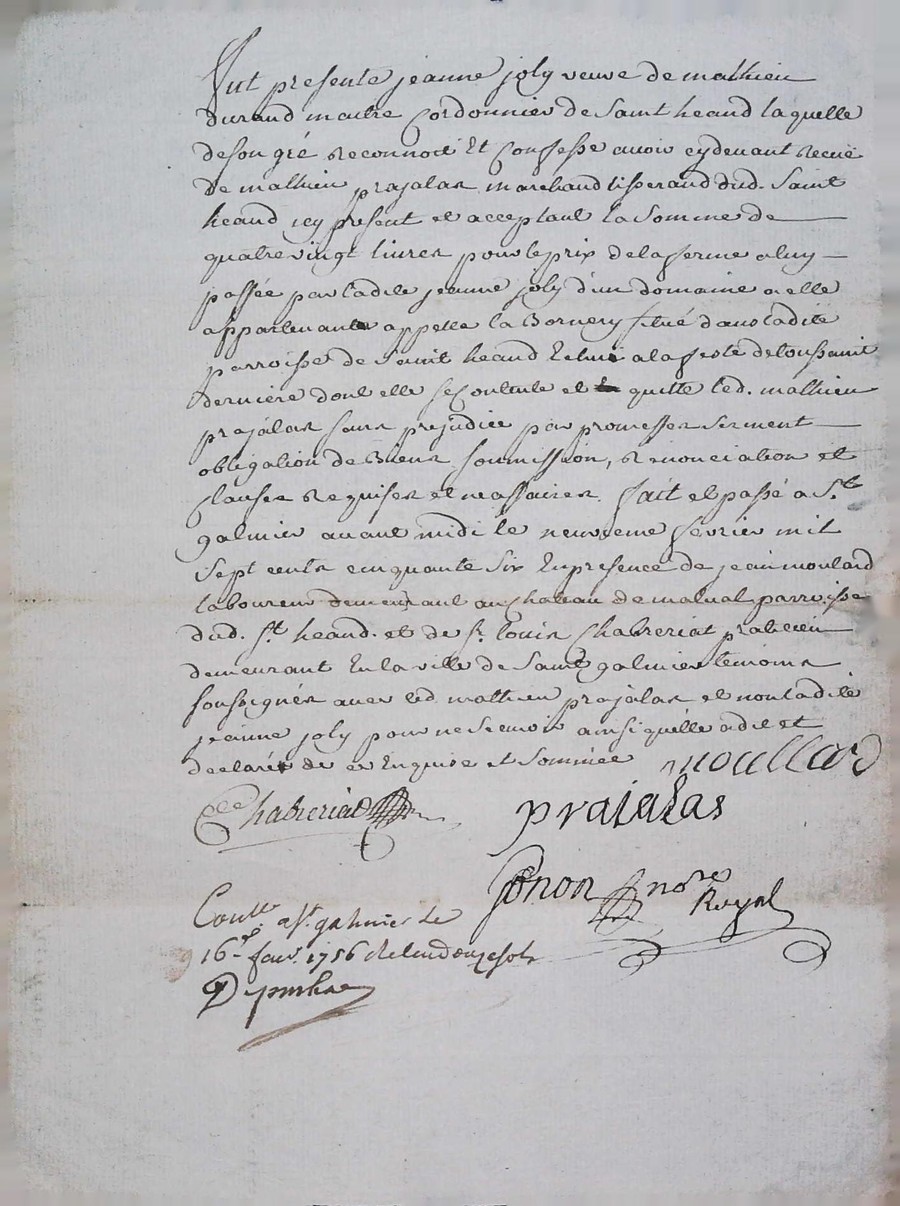 fut presente jeanne joly veuve de mathieu
durand maitre Cordonnier de Saint heand laquelle
de son gré reconnoit Et Confesse avoir cydevant receu
de mathieu prajalas marchand tisserand dud. Saint
heand icy present et acceptant la Somme de
quatre vingt livres pour le prix de la ferme a luy
passée par ladite jeanne joly d'un domaine a elle
appartenante appellé la Bornery situé dans ladite
parroisse de Saint heand Echue a la feste de toussaint
derniere dont elle se Contente et quitte led. mathieu
prajalas sans prejudice par promesses serment
obligation de Biens soumission, renonciation et
Clauses requises et necessaires. fait et passé a St.
galmier avant midi le neuvieme fevrier mil
sept cents cinquante six En presence de jean moulard
laboureur demeurant au Chateau de malval parroisse
dud. St. heand. et de Sr. louis Chabreriat praticien
demeurant En la ville de Saint galmier temoins
soussignés avec led. mathieu prajalas et non ladite
jeanne joly pour ne Scavoir ainsi qu'elle a dit et
declaré de ce Enquise et Sommée moullard
Chabreriat prajalas
Ponon nore
Royal
Conlle a St. galmier le
16e fevr. 1756 Recu douze sols